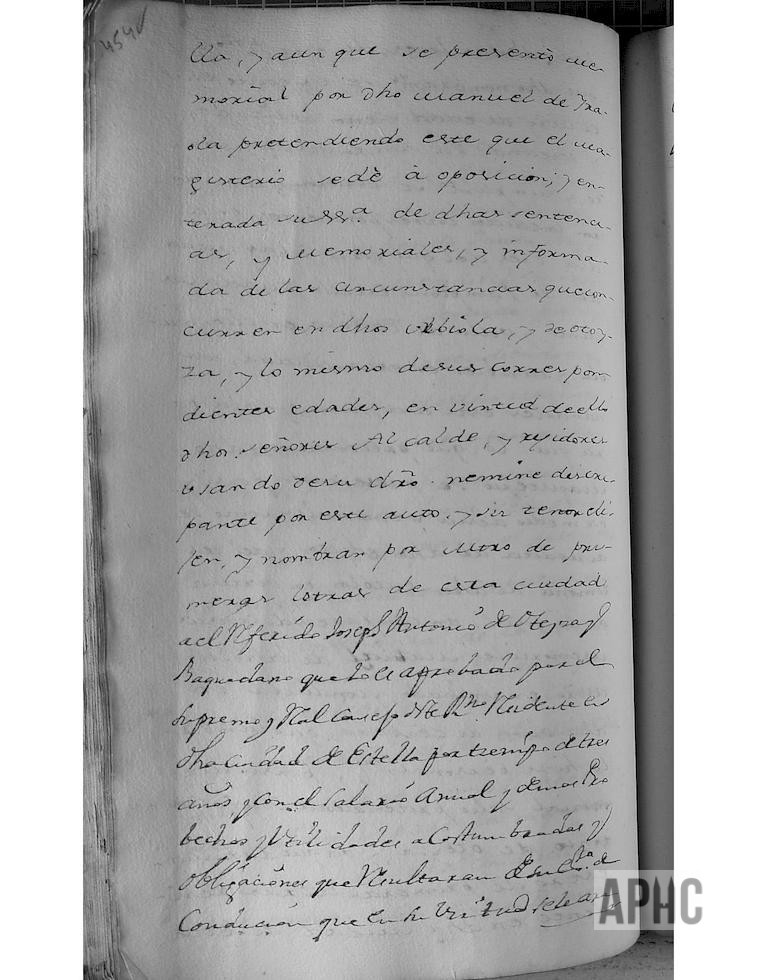 454v
lla, y aun que se presentò me-
morial por dho Manuel de Yra-
ola pretendiendo este que el ma-
gisterio sedè à oposicion; y en-
terada su SSª. de dhas sentenci-
as, y Memoriales, y informa-
da de las circunstancias que con-
curren en dhos Urbiola, y de Otey-
za, y lo mismo desus corres pon-
dientes edades, en virtud de ello
dhos. señores Alcalde, y rejidores
usando desu dro. nemine discre-
pante por este auto. y su tenor eli-
jen, y nombran por Mtro de pri-
meras letras de esta ciudad
a el Referido Joseph Antonio de Oteyza y
Baquedano que lo es aprobado por el
supremo y Real Consejo de este Rno. Residente en
dha Ciudad de Estella por tiempo de tres
años y con el salario Anual y demas Pro
bechos y Utilidades acostumbradas y
obligaciones que Resultaran de su Escra. de
Conducion que en su Virtud se le ar
APHC